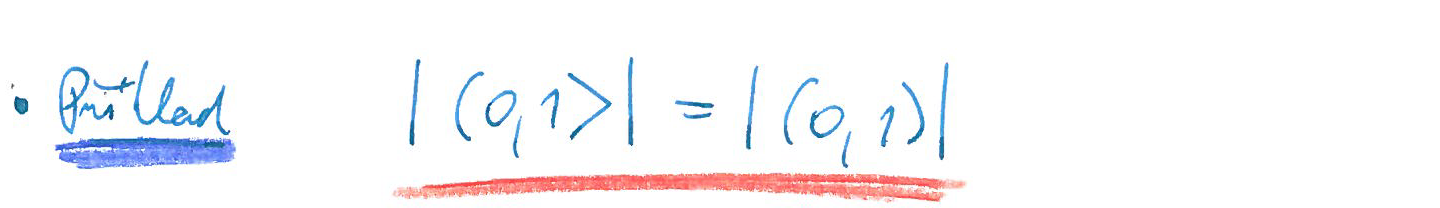 • Příklad |(0,1>| = |(0,1)|